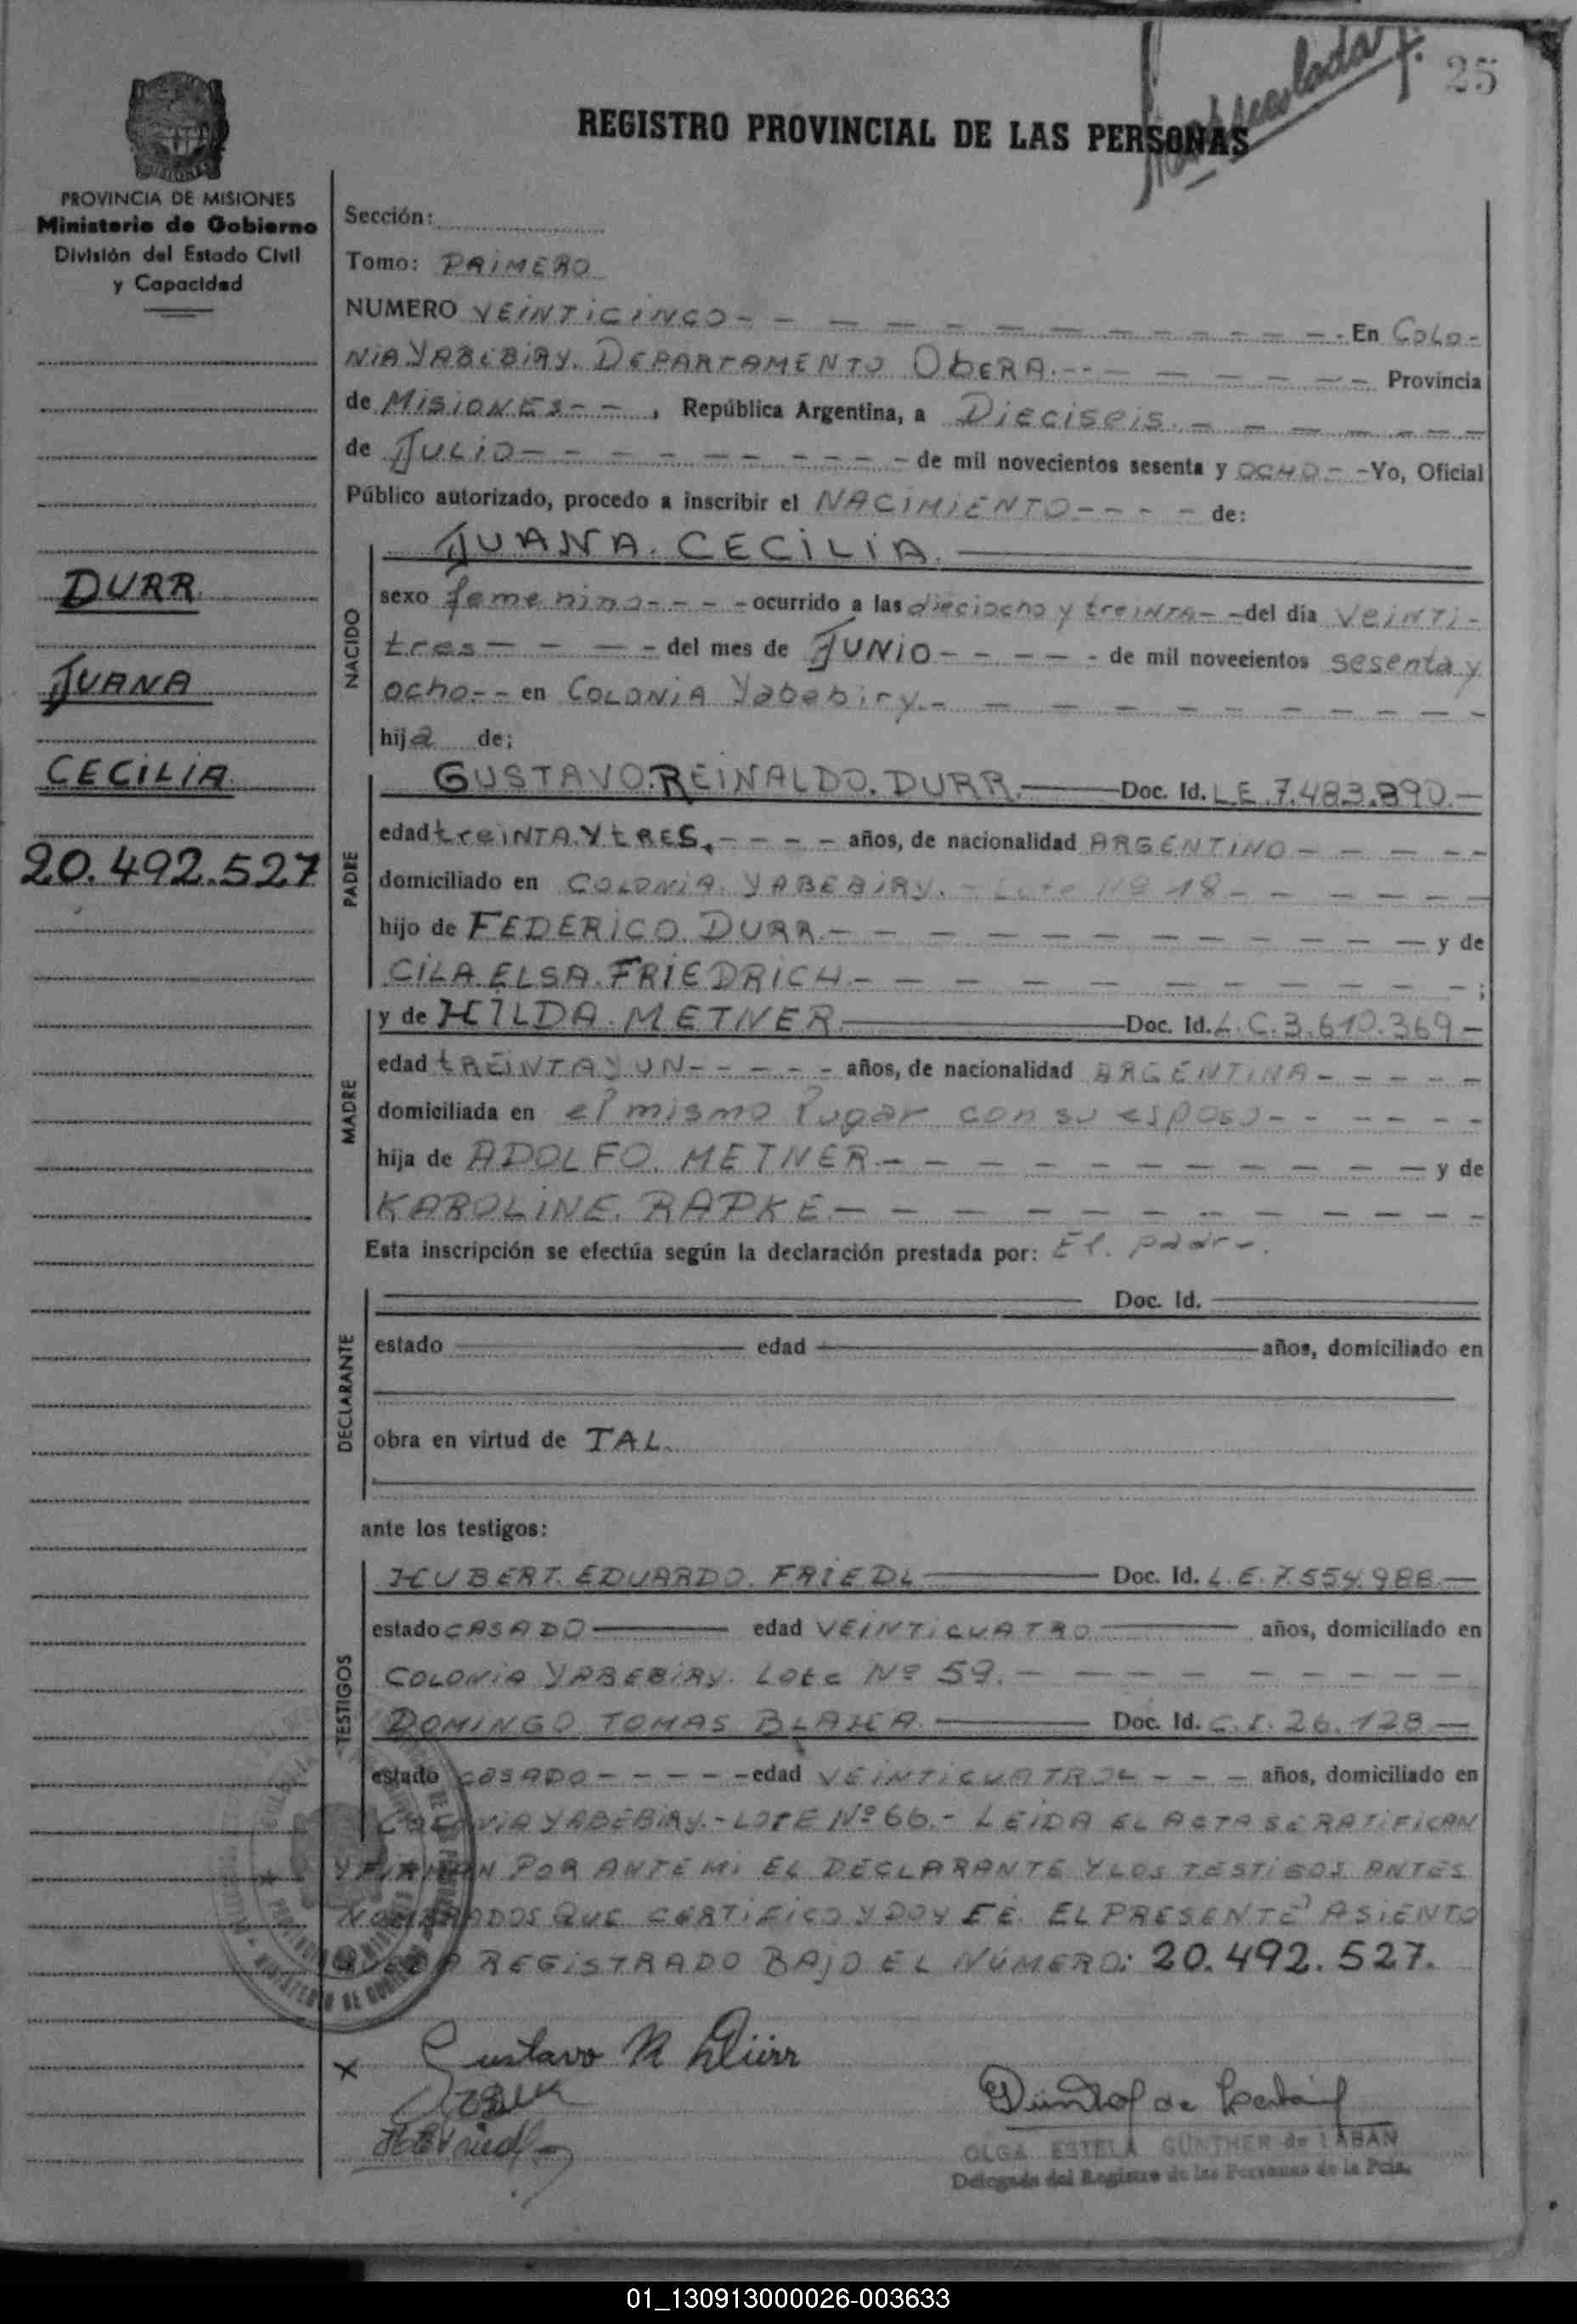 25
REGISTRO PROVINCIAL DE LAS PERSONAS
PROVINCIA DE MISIONES
Ministerio de Gobierno
División del Estado Civil
y Capacidad
DURR
JUANA
CECILIA
20.492.527
Sección:
Tomo: PRIMERO
NUMERO VEINTICINCO - En COLO-
NIA YABEBIRY. DEPARTAMENTO OBERA. - Provincia
de MISIONES - , República Argentina, a DIECISEIS. -
de JULIO - de mil novecientos sesenta y OCHO. - Yo, Oficial
Público autorizado, procedo a inscribir el NACIMIENTO - de:
JUANA. CECILIA.
NACIDO
sexo femenino - ocurrido a las dieciocho y treinta - del día veinti-
tres - del mes de JUNIO - de mil novecientos sesenta y
ocho. - en COLONIA Yabebiry. -
hija de;
PADRE
GUSTAVO. REINALDO. DURR. Doc. Id. L.E. 7.483.890. -
edad treINTA. Y tRES, - años, de nacionalidad ARGENTINO -
domiciliado en COLONIA. YABEBIRY. - Lote Nº 18 -
hijo de FEDERICO. DURR. - y de
CILA. ELSA. FRIEDRICH - ;
MADRE
y de HILDA. METNER. Doc. Id. L.C. 3.610.369 -
edad tREINTA Y UN - años, de nacionalidad ARGENTINA -
domiciliada en el mismo lugar con su esposo -
hija de ADOLFO. METNER. - y de
KAROLINE. RAPKE. -
Esta inscripción se efectúa según la declaración prestada por: El. padre.
DECLARANTE
Doc. Id.
estado edad años, domiciliado en
obra en virtud de TAL.
ante los testigos:
TESTIGOS
HUBERT. EDUARDO. FRIEDL Doc. Id. L.E. 7.554.988 -
estado CASADO edad VEINTICUATRO años, domiciliado en
COLONIA YABEBIRY. Lote Nº 59. -
DOMINGO TOMAS BLAHA. Doc. Id. C.I. 26.128 -
estado CASADO - edad VEINTICUATRO - años, domiciliado en
COLONIA YABEBIRY. - LOTE Nº 66. - LEIDA EL ACTA SE RATIFICAN
Y FIRMAN POR ANTE MI EL DECLARANTE Y LOS TESTIGOS ANTES
NOMBRADOS QUE CERTIFICO Y DOY FE. EL PRESENTE ASIENTO
QUEDA REGISTRADO BAJO EL NÚMERO: 20.492.527.
x Gustavo R Dürr
OLGA ESTELA GÜNTHER de LABAN
Delegada del Registro de las Personas de la Pcia.
01_130913000026-003633